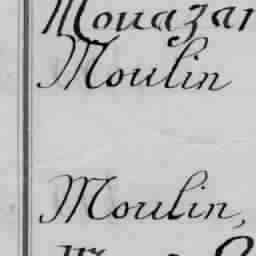 Mouazan
Moulin
Moulin,